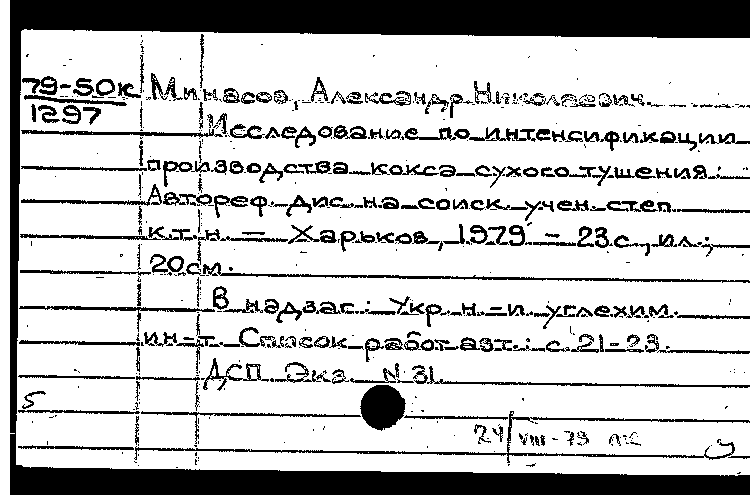 79-50к Минасов, Александр Николаевич.
1297
Исследование по интенсификации
производства кокса сухого тушения:
Автореф. дис. на соиск. учен. степ.
к.т.н. – Харьков, 1979 – 23с., ил.;
20см.
В надзаг.: Укр. н.-и. углехим.
ин-т. Список работ авт.: с. 21-23.
ДСП Экз. N 31.
5
24/VIII-79